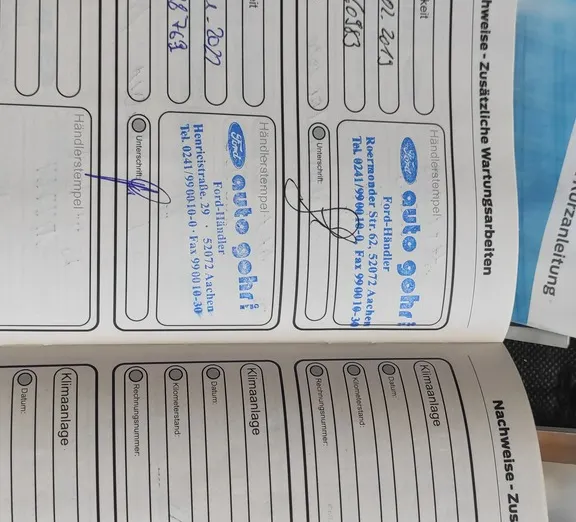 Nachweise - Zusätzliche Wartungsarbeiten
Händlerstempel
Ford auto gohr
Ford-Händler
Roermonder Str. 62, 52072 Aachen
Tel. 0241/990010-0, Fax 990010-30
Unterschrift:
Händlerstempel
Ford auto gohr
Ford-Händler
Henricistraße. 29 · 52072 Aachen
Tel. 0241/990010-0 · Fax 990010-30
Unterschrift:
Händlerstempel
Nachweise - Zus
Klimaanlage
Datum:
Kilometerstand:
Rechnungsnummer:
Klimaanlage
Datum:
Kilometerstand:
Rechnungsnummer:
Klimaanlage
Datum:
Kurzanleitung